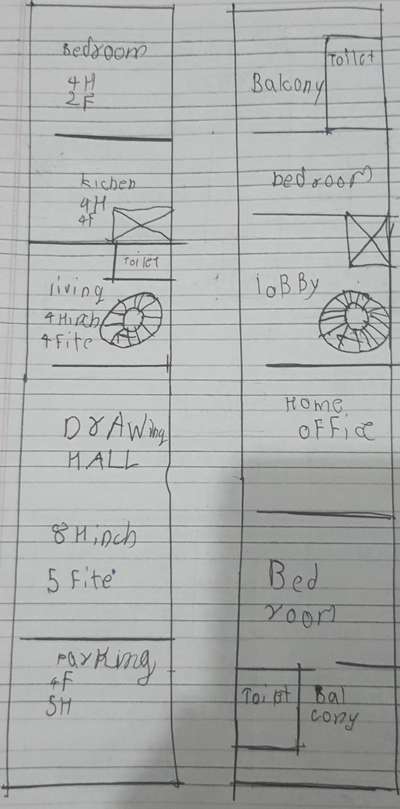 Bedroom
4H
2F
kichen
9H
4F
Toilet
living
4 Hinch
4 Fite
DrAwing
HALL
8 Hinch
5 Fite
Parking
4F
5H
Toilet
Balcony
bedroom
loBBy
Home
OFFice
Bed
room
Toilet
Bal
cony